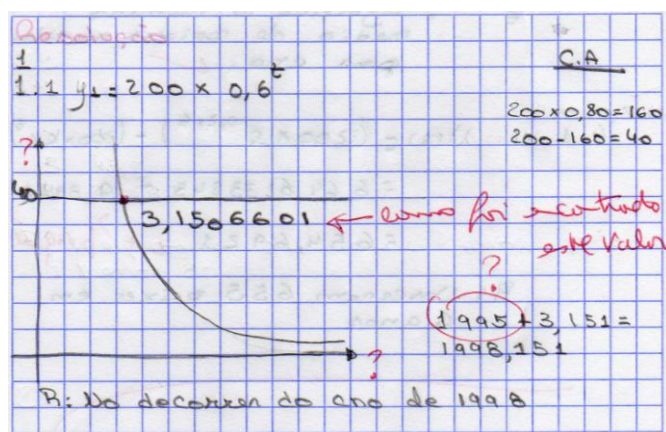 Resolução
1
1.1 y1 = 200 × 0,6^t
C.A
200 × 0,80 = 160
200 - 160 = 40
?
40
3,1506601 ← como foi encontrado este valor
?
1995 + 3,151 =
1998,151
?
R: No decorrer do ano de 1998